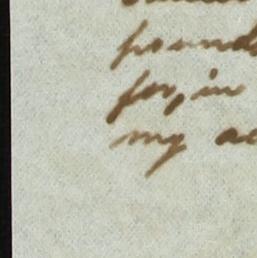 pounds
for, in
my ac